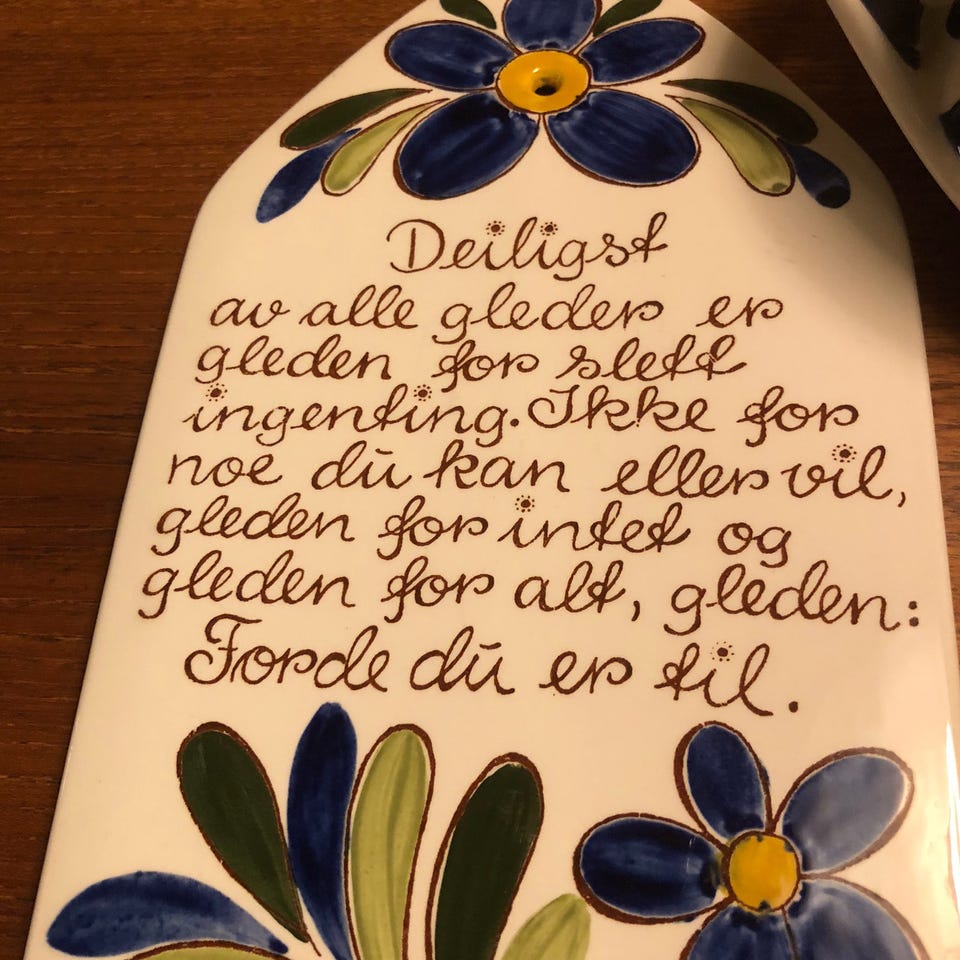 Deiligst
av alle gleder er
gleden for slett
ingenting. Ikke for
noe du kan eller vil,
gleden for intet og
gleden for alt, gleden:
Forde du er til.